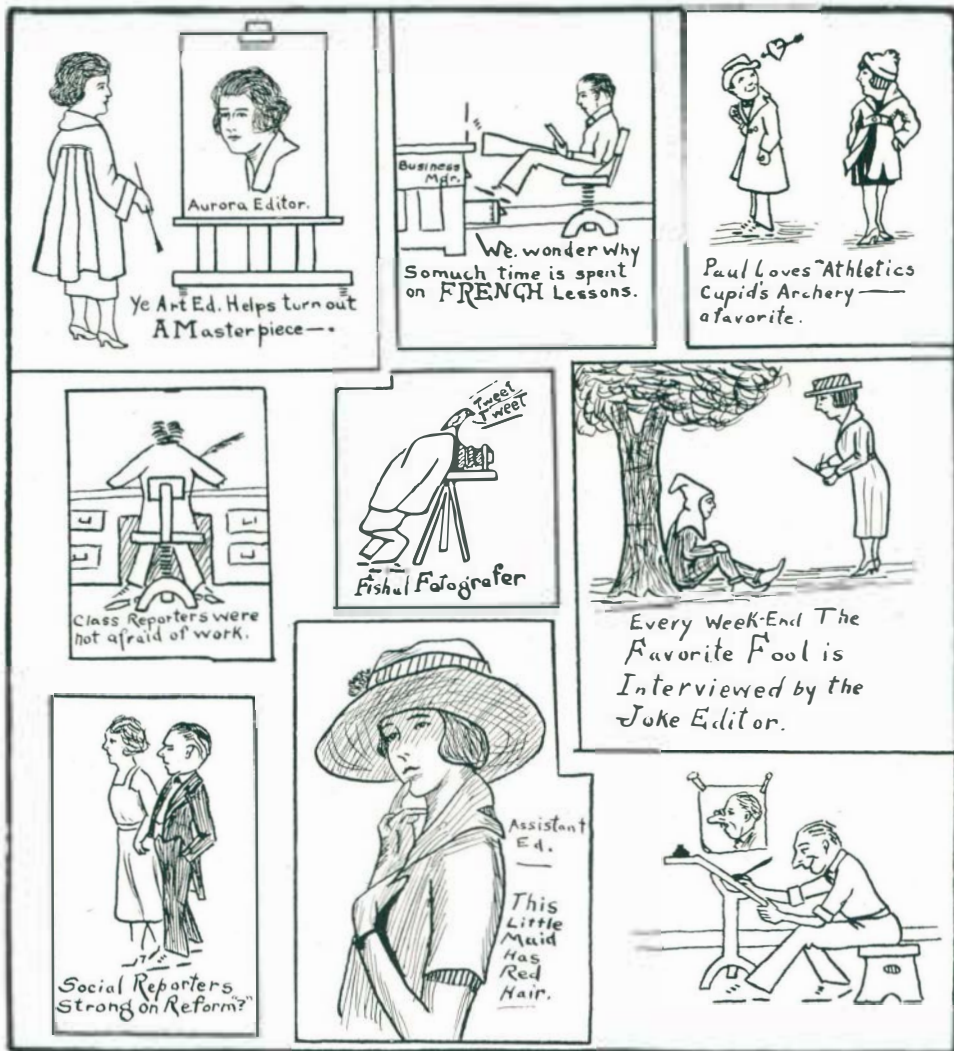 Aurora Editor.
Ye Art Ed. Helps turn out
A Masterpiece—.
Business
Mgr.
We wonder why
So much time is spent
on FRENCH Lessons.
Paul Loves "Athletics
Cupid's Archery —
a favorite.
Class Reporters were
not afraid of work.
Tweet
Tweet
Fishul Fotografer
Every Week-End The
Favorite Fool is
Interviewed by the
Joke Editor.
Social Reporters
Strong on Reform"?"
Assistant
Ed.
This
Little
Maid
Has
Red
Hair.